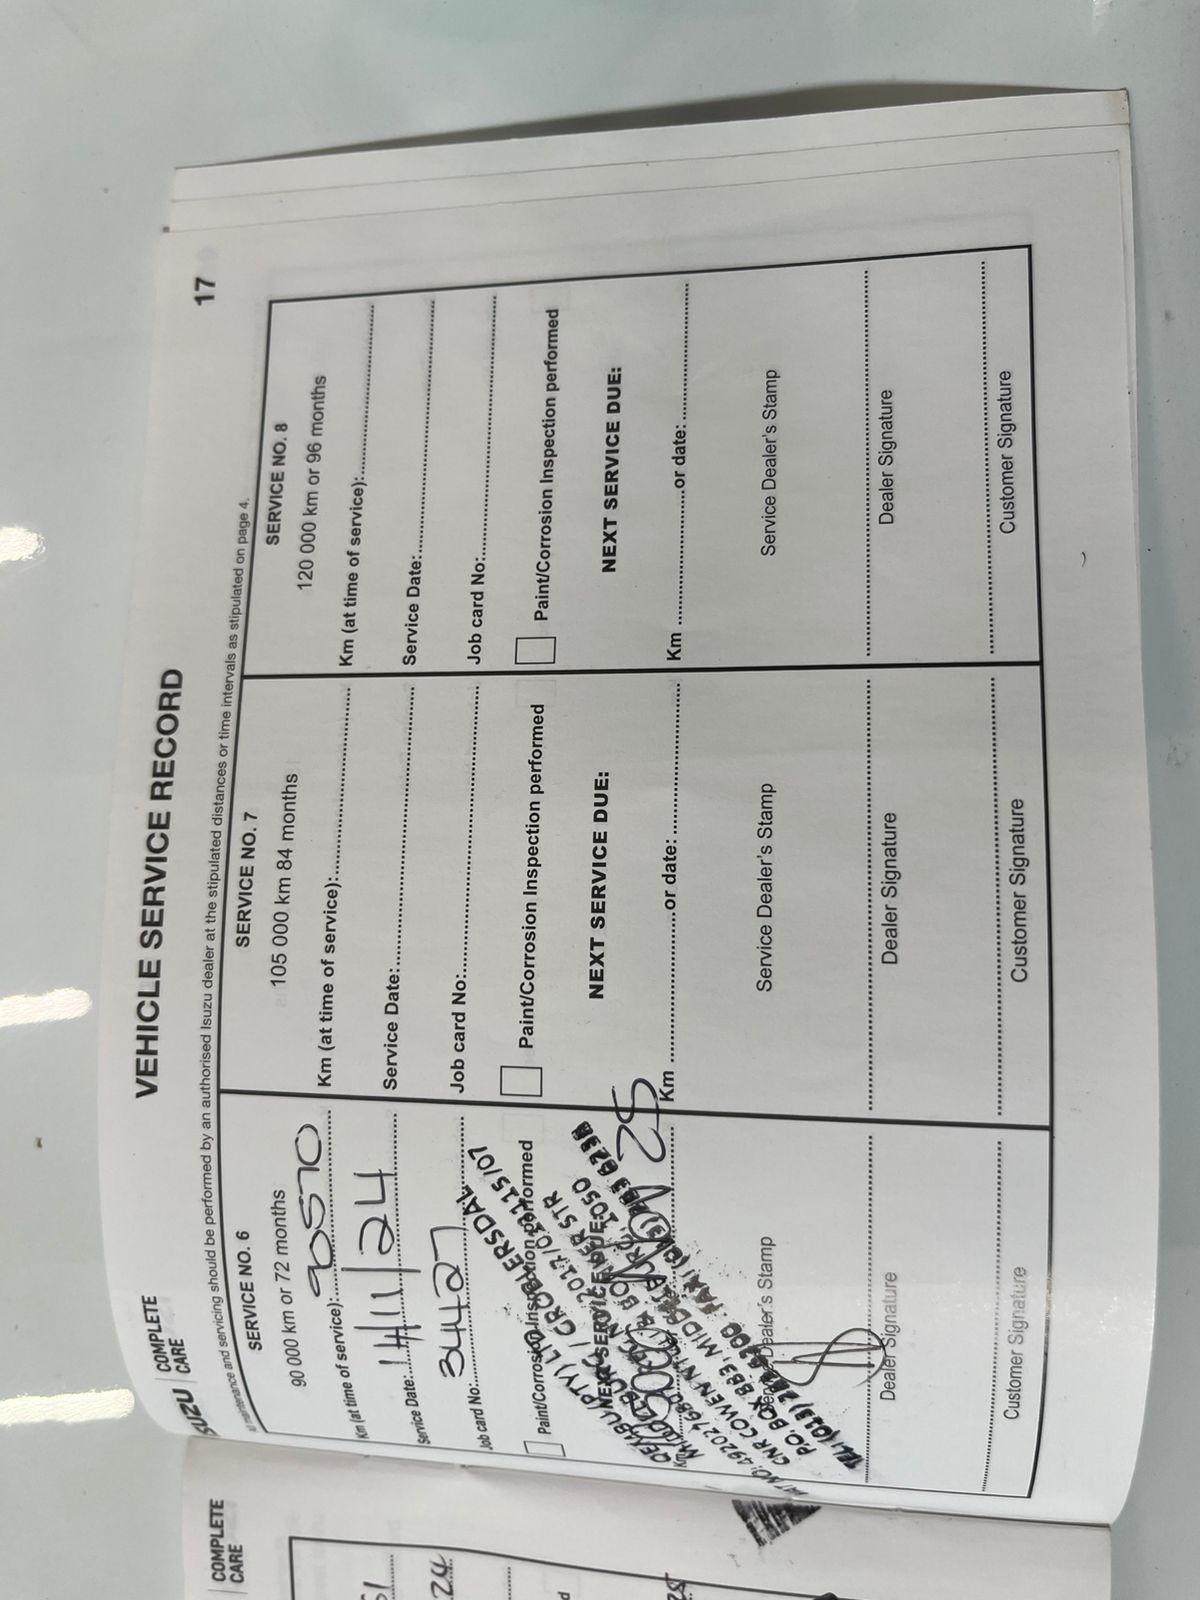 COMPLETE
CARE
24
SUZU | COMPLETE
CARE
VEHICLE SERVICE RECORD
17
maintenance and servicing should be performed by an authorised Isuzu dealer at the stipulated distances or time intervals as stipulated on page 4.
SERVICE NO. 6
90 000 km or 72 months
Km (at time of service): 90570
Service Date: 14/11/24
Job card No: 34427
Paint/Corrosion Inspection performed
NEXT SERVICE DUE:
Km
(PTY) LTD
MIDDELBURG / GROBLERSDAL
2017/012115/07
CNR COWEN NTULI &
P.O. BOX 883, MIDDELBURG, 1050
Service Dealer's Stamp
Dealer Signature
Customer Signature
SERVICE NO. 7
105 000 km 84 months
Km (at time of service):
Service Date:
Job card No:
Paint/Corrosion Inspection performed
NEXT SERVICE DUE:
Km ....................or date: ....................
Service Dealer's Stamp
Dealer Signature
Customer Signature
SERVICE NO. 8
120 000 km or 96 months
Km (at time of service):
Service Date:
Job card No:
Paint/Corrosion Inspection performed
NEXT SERVICE DUE:
Km ....................or date: ....................
Service Dealer's Stamp
Dealer Signature
Customer Signature